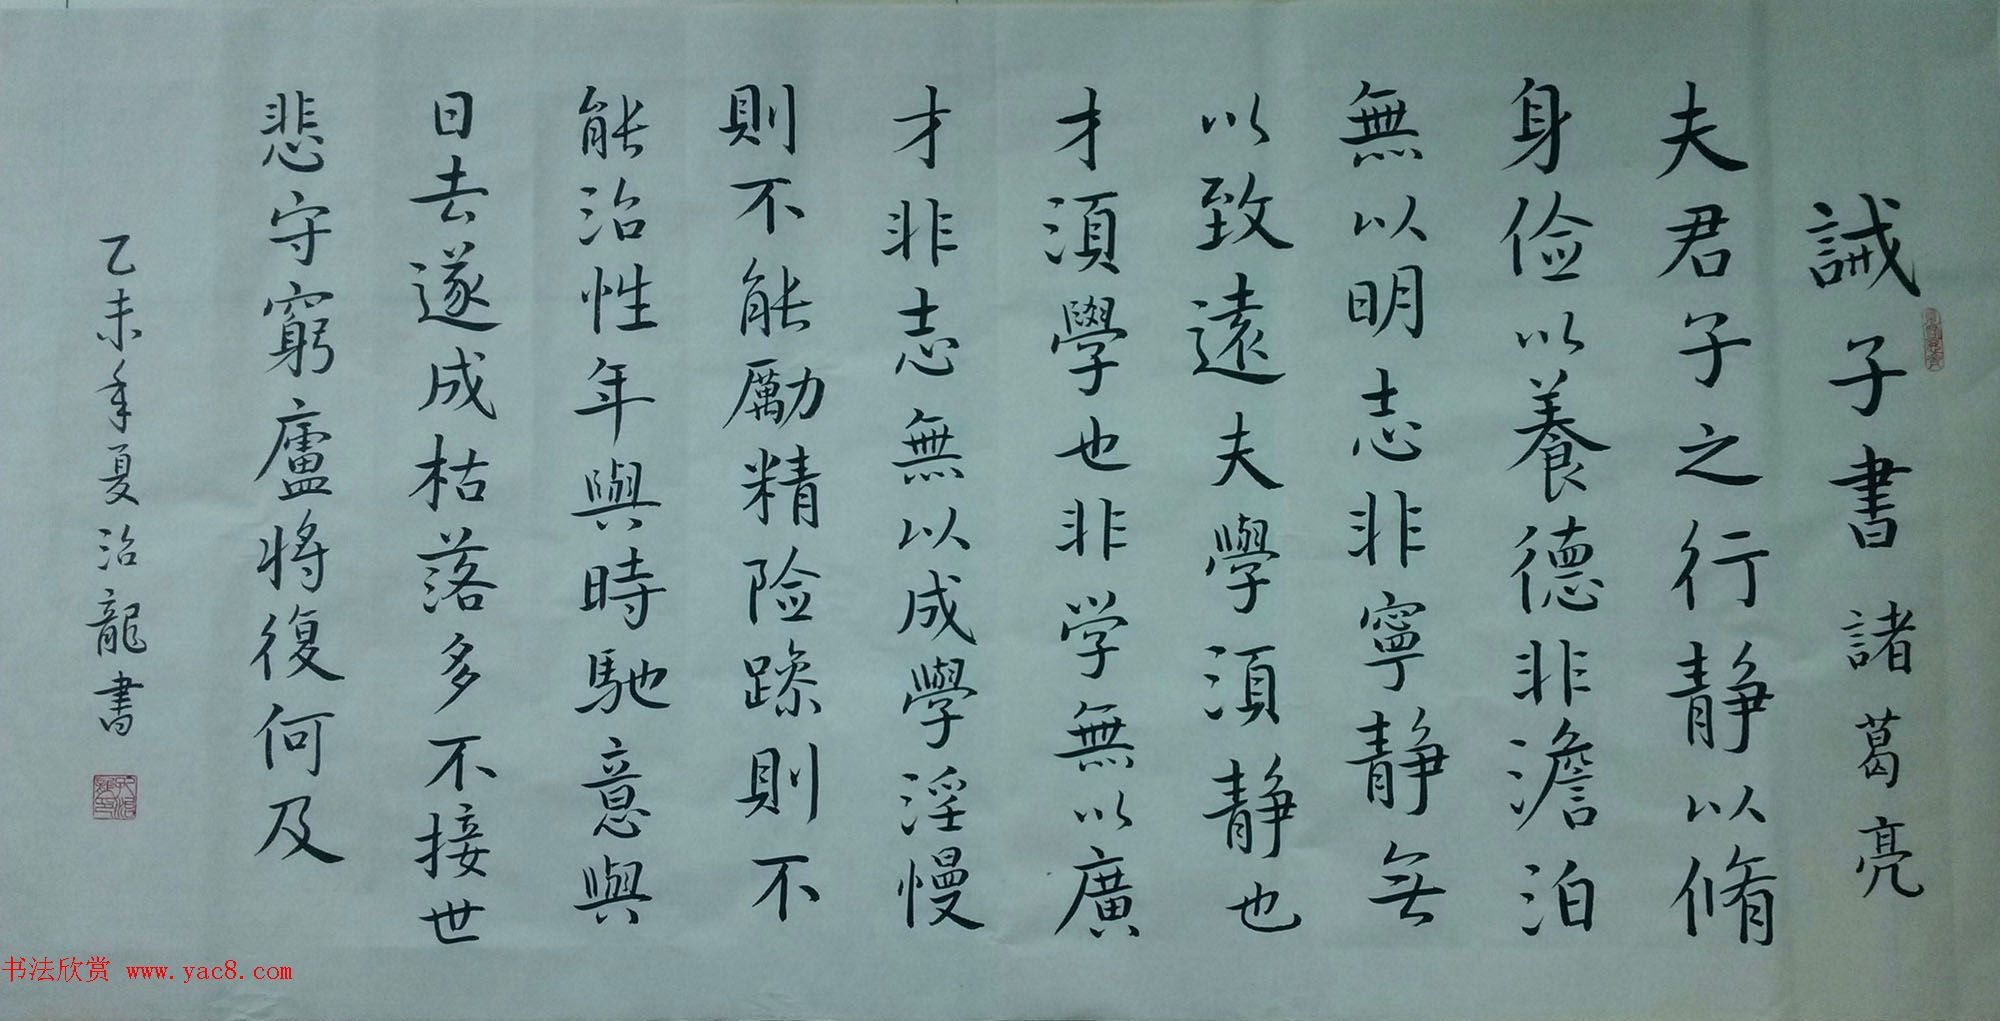 誡子書 諸葛亮
夫君子之行静以脩
身俭以養德非澹泊
無以明志非寧静无
以致遠夫學湏静也
才湏學也非学無以廣
才非志無以成學淫慢
則不能勵精险躁則不
能治性年與時馳意與
日去遂成枯落多不接世
悲守窮廬将復何及
乙未年夏治龍書
书法欣赏 www.yac8.com